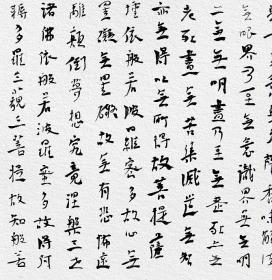 無眼界乃至無意識界無無明
亦無無明盡乃至無老死亦無
老死盡無苦集滅道無智
亦無得以無所得故菩提薩
埵依般若波羅蜜多故心無
罣礙無罣礙故無有恐怖遠
離顛倒夢想究竟涅槃三世
諸佛依般若波羅蜜多故得阿
耨多羅三藐三菩提故知般若